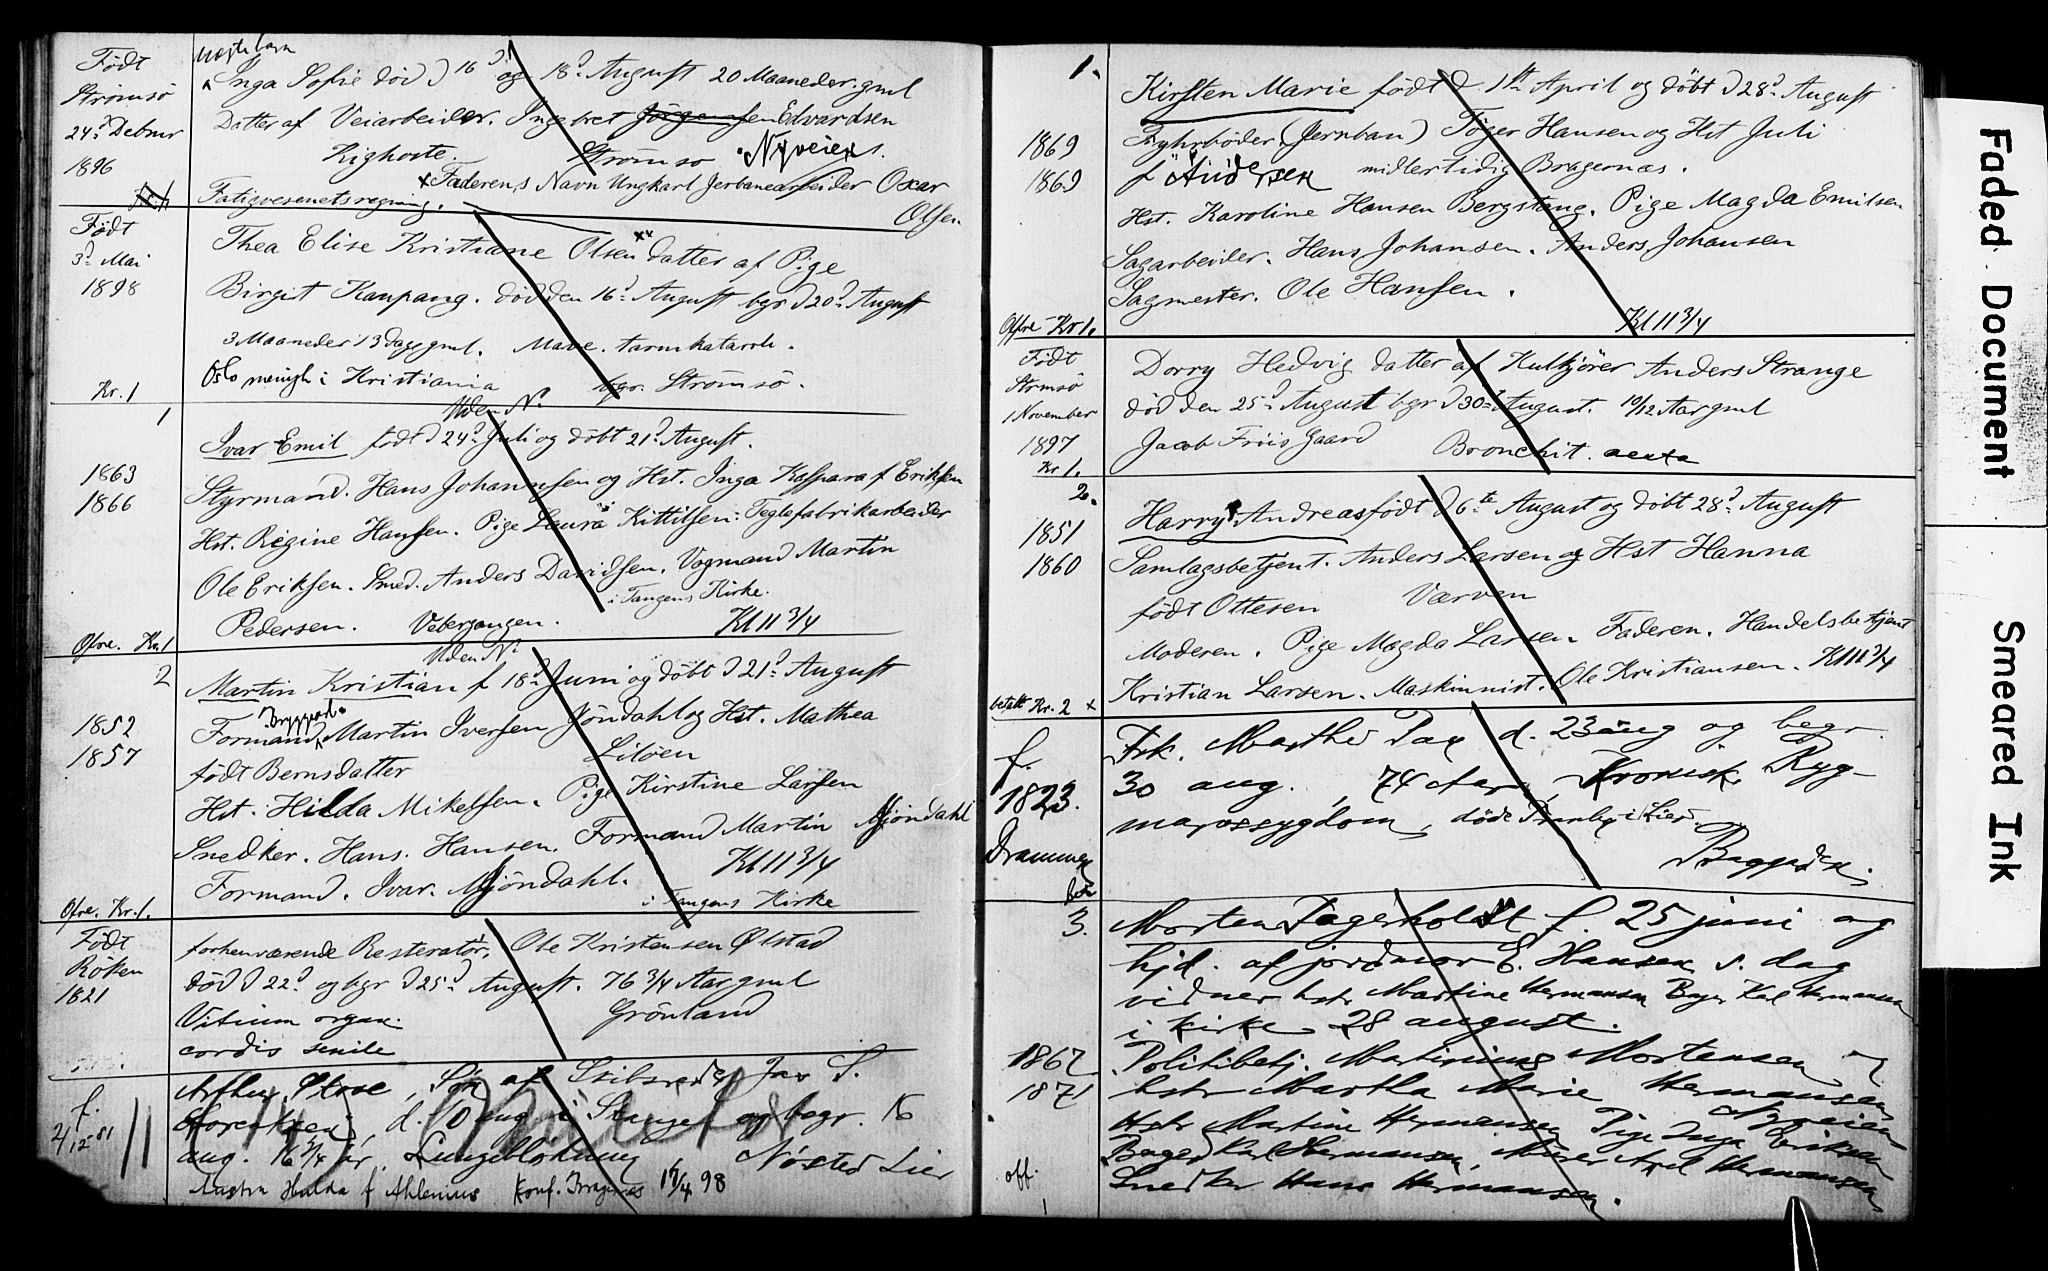 Født
Strømsø
24d Debmr
1896
uægte barn
Inga Sofie død d 16d og 18d August 20 Maaneder gml
Datter af Veiarbeider. Ingebret Jörgensen Edvardsen
Kighoste. Strømsø Nyveien.
x Faderens Navn Ungkarl Jerbanearbeider Oscar
Olsen.
Fatigvesenets regning.
Født
3d Mai
1898
Kr. 1
Thea Elise Kristiane Olsen datter af Pige
Birgit Kaupang. død den 16d August bgr d 20d August
3 Maaneder 13 dage gml. Mave. tarmkatarrh.
Oslo menigh i Kristiania bgr. Strømsø.
1
1863
1866
Ofre. Kr. 1
Uden No
Ivar Emil født d 24d Juli og döbt 21d August.
Styrmand. Hans Johannesen og Hst. Inga Kaspara f Eriksen
Hst. Regine Hansen. Pige Laura Kittilsen. Teglefabrikarbeider
Ole Eriksen. Smed. Anders Davidsen. Vogmand Martin
Pedersen. Vebergangen. i Tangens Kirke.
Kl 11 3/4
2
1852
1857
Ofre. Kr. 1.
Uden No
Martin Kristian f 18d Juni og döbt d 21d August
Bryggeri
Formand Martin Iversen Mjöndahl og Hst. Mathea
født Berntsdatter Liløen
Hst. Hilda Mikelsen. Pige Kirstine Larsen
Snedker. Hans. Hansen. Formand Martin Mjöndahl
Formand. Ivar. Mjöndahl. Kl 11 3/4
i Tangens Kirke
Født
Röken
1821
forhenværende Resteratör. Ole Kristensen Ølstad
død d 22d og bgr d 25d August. 76 3/4 Aar gml
Vitium organ. Grönland
cordis senile
f.
2/12 81
Arthur Stove, Søn af Skibsreder Jac S.
Lorentzen, d. 10 aug i Stanger og begr. 16
aug. 16 3/4 år, Lungeblödning Nøsted Lier
Austra Hulda f Ahlenius Konf. Bragernes 17/4 98
1.
1869
1869
Ofre Kr 1.
Kirsten Marie født d. 1ste April og döbt d 28d August
Fyhrböder (Jernban) Töger Hansen og Hst Juli
f Andersen midlertidig Bragernæs.
Hst. Karoline Hansen Bergstang. Pige Magda Emilsen
Sagarbeider. Hans Johansen. Anders Johansen
Sagmester. Ole Hansen.
Kl 11 3/4
Født
Strmsö
1 November
1897
Kr 1.
Dorry Hedvig datter af Kulkjörer Anders Strange
død den 25d August bgr d 30d August. 10/12 Aar gml
Jacob Friis Gaard Bronchit. acuta
2.
1851
1860
betalt Kr. 2 x
Harry Andreas født d 6te August og döbt 28d August
Samlagsbetjent. Anders Larsen og Hst Hanna
født Ottesen Værven
Moderen. Pige Magda Larsen. Faderen. Handelsbetjent
Kristian Larsen. Maskinnist. Ole Kristiansen. Kl 11 3/4
f.
1823.
Drammen
Frk. Marthe Pax d. 23 aug og begr
30 aug., 74 Aar, Kronisk Ryg-
marvssygdom, döde Tranby i Lier.
3.
1867
1871
off.
1
Morten Fagerholdt f. 25 juni og
hjd. af jordmor E. Hansen s. dag
vidner hstr Martine Hermansen Bager Karl Hermansen
i kirke 28 august.
Politibetj. Martinius Mortensen og
hstr Martha Marie Hermansen
Nyveien
Hstr Martine Hermansen Pige Inga Eriksen
Bager Karl Hermansen, Murer Axel Hermansen
Snedker Hans Hermansen.
Faded Document
Smeared Ink